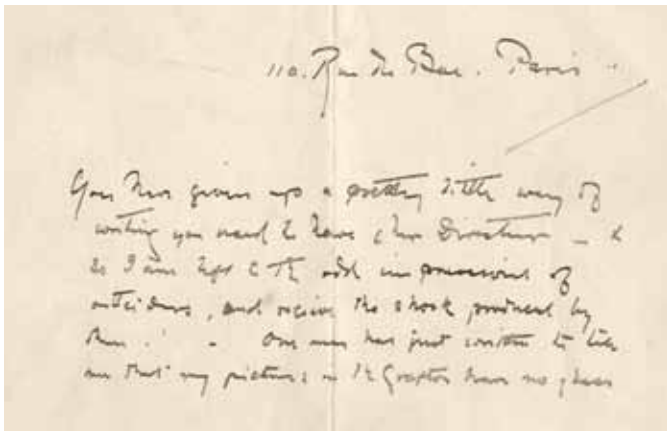 110. Rue du Bac. Paris
You have given up a pretty little way of
writing you used to have when Director — &
so I am left to the odd impressions of
outsiders, and receive the shock produced by
them! - One man has just written to tell
me that my pictures in the Grafton have no glass